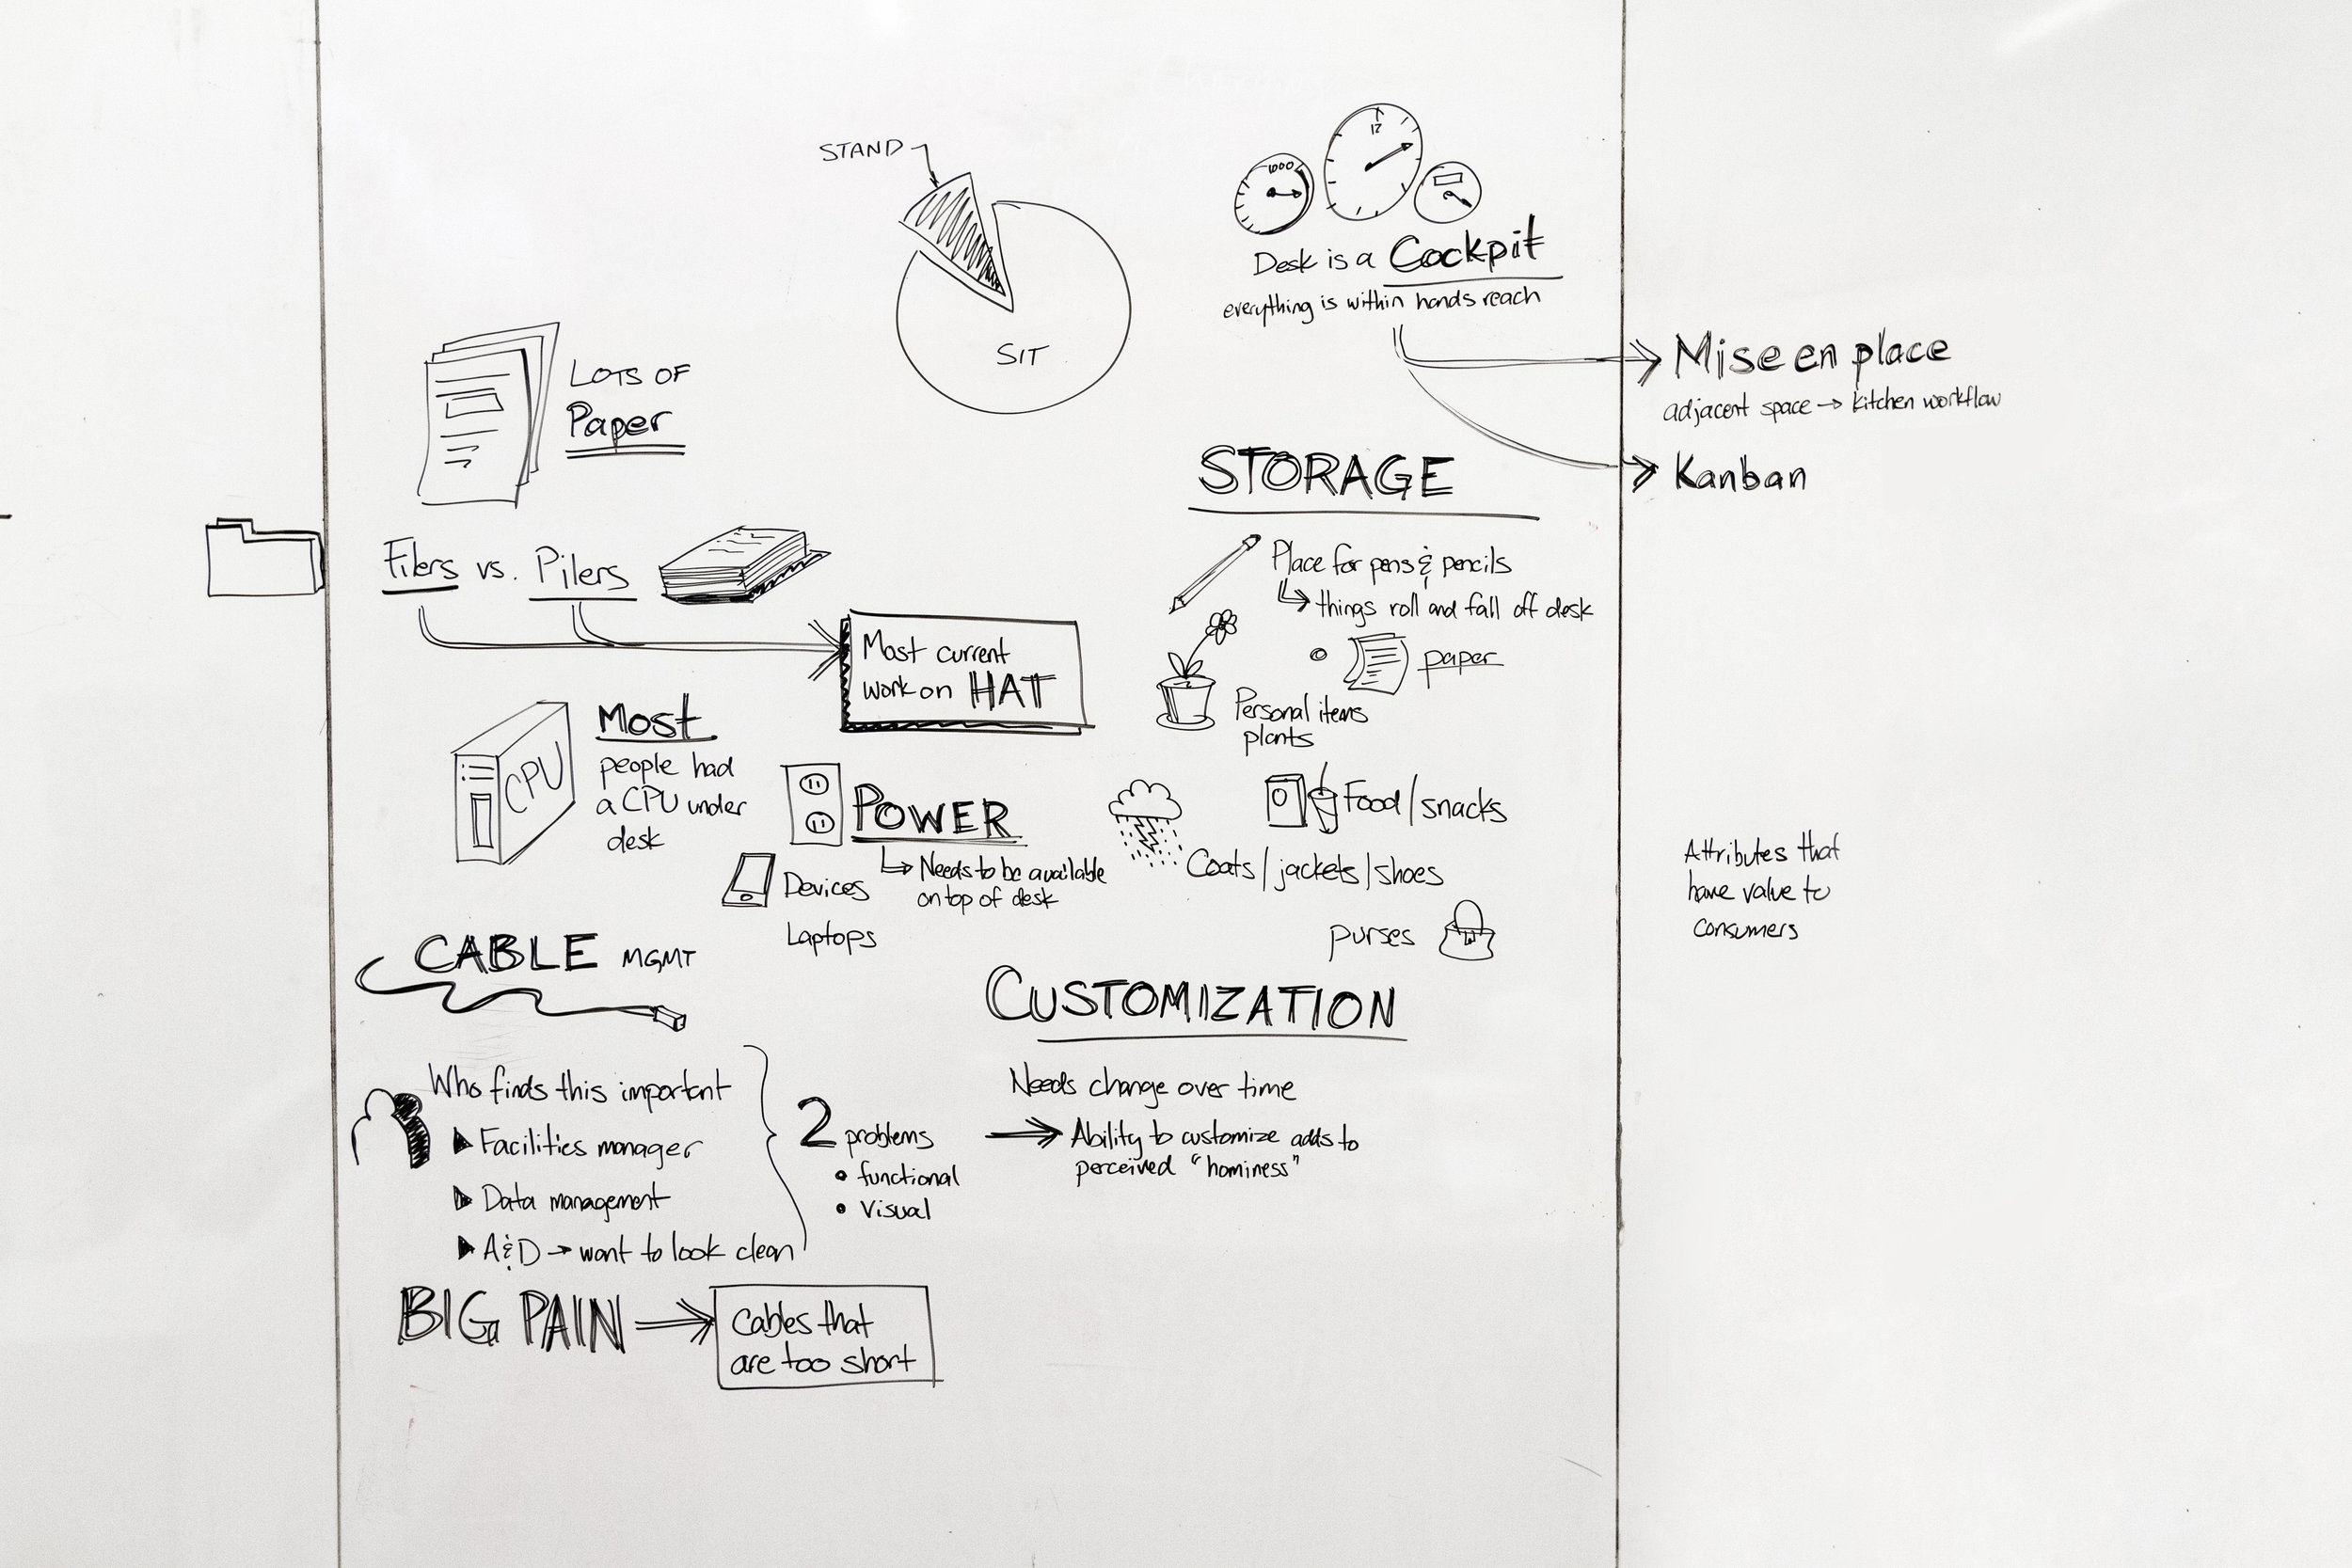 STAND
SIT
1000
12
Desk is a Cockpit
everything is within hands reach
Mise en place
adjacent space → kitchen workflow
Kanban
LOTS OF
Paper
Filers vs. Pilers
Most current
work on HAT
CPU
Most
people had
a CPU under
desk
POWER
Needs to be available
on top of desk
Devices
Laptops
STORAGE
Place for pens & pencils
things roll and fall off desk
paper
Personal items
plants
Food/snacks
Coats/jackets/shoes
purses
Attributes that
have value to
consumers
CABLE MGMT
Who finds this important
Facilities manager
Data management
A&D → want to look clean
2 problems
• functional
• visual
BIG PAIN →
Cables that
are too short
CUSTOMIZATION
Needs change over time
→ Ability to customize adds to
perceived "hominess"